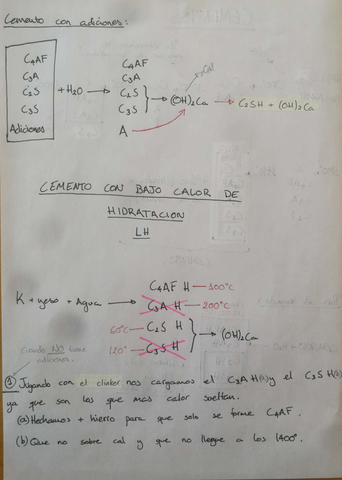 Cemento con adiciones:
C₄AF
C₃A
C₂S
C₃S
Adiciones
+ H₂O →
C₄AF
C₃A
C₂S
C₃S
A
→ (OH)₂Ca
→ C₂SH + (OH)₂Ca
CEMENTO CON BAJO CALOR DE
HIDRATACION
LH
K + yeso + Agua →
C₄AF H — 100°C
C₃A H — 200°C
60°C — C₂S H
120° — C₃S H
→ (OH)₂Ca
Cuando NO tiene
adiciones.
① Jugando con el clinker nos cargamos el C₃AH(s) y el C₃SH(s)
ya que son los que mas calor sueltan.
(a) Hechamos + hierro para que solo se forme C₄AF.
(b) Que no sobre cal y que no llegue a los 1400°.